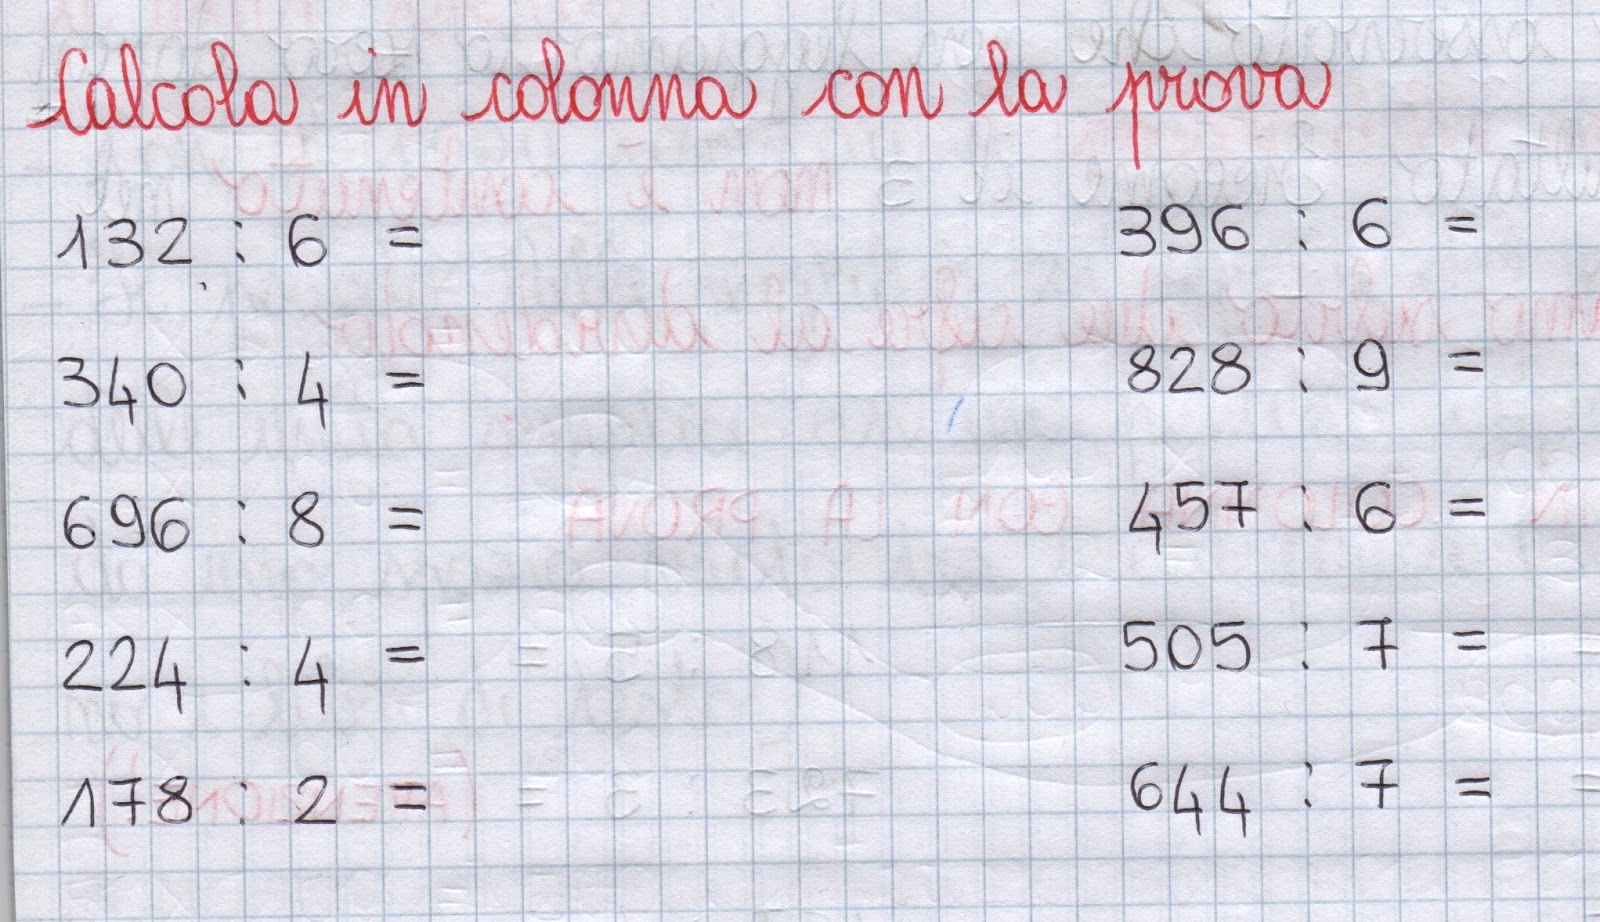 Calcola in colonna con la prova
132 : 6 =
340 : 4 =
696 : 8 =
224 : 4 =
178 : 2 =
396 : 6 =
828 : 9 =
457 : 6 =
505 : 7 =
644 : 7 =